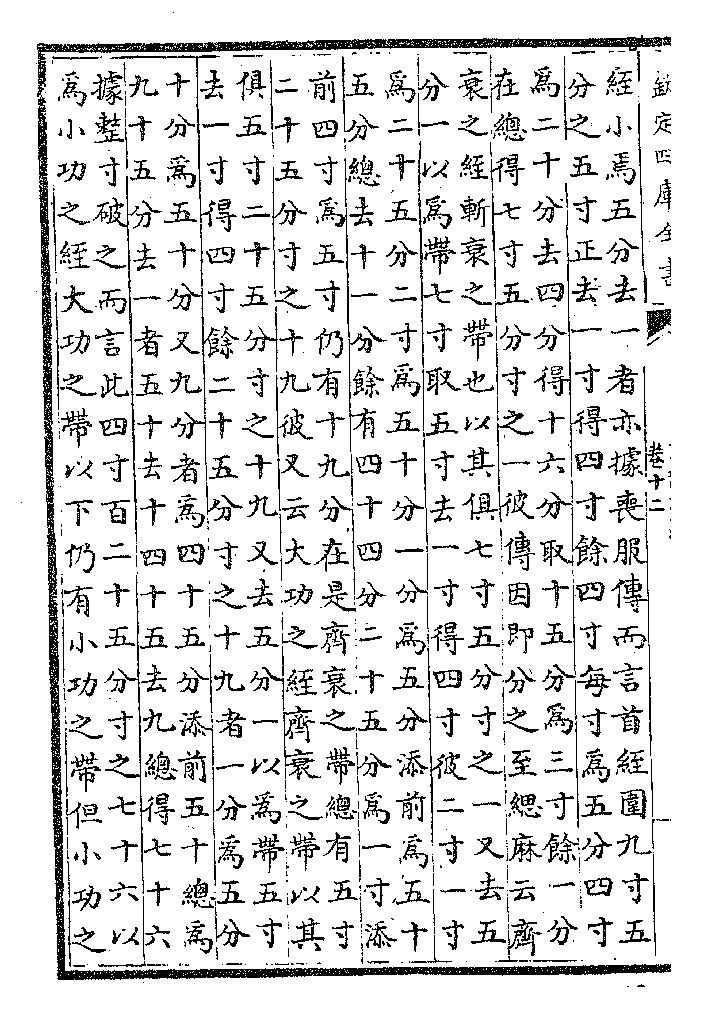 欽定四庫全書
卷十二
絰小焉五分去一者亦據喪服傳而言首絰圍九寸五
分之五寸正去一寸得四寸餘四寸每寸為五分四寸
為二十分去四分得十六分取十五分為三寸餘一分
在總得七寸五分寸之一彼傳因即分之至緦麻云齊
衰之絰斬衰之帶也以其俱七寸五分寸之一又去五
分一以為帶七寸取五寸去一寸得四寸彼二寸一寸
為二十五分二寸為五十分一分為五分添前為五十
五分總去十一分餘有四十四分二十五分為一寸添
前四寸為五寸仍有十九分在是齊衰之帶總有五寸
二十五分寸之十九彼又云大功之絰齊衰之帶以其
俱五寸二十五分寸之十九又去五分一以為帶五寸
去一寸得四寸餘二十五分寸之十九者一分為五分
十分為五十分又九分者為四十五分添前五十總為
九十五分去一者五十去十四十五去九總得七十六
據整寸破之而言此四寸百二十五分寸之七十六以
為小功之絰大功之帶以下仍有小功之帶但小功之